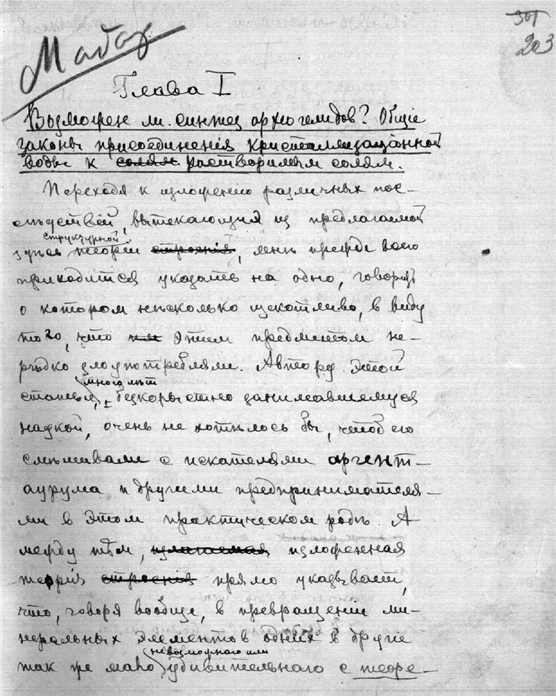 301
203
Глава I
Возможен ли синтез археогелидов? Общіе
законы присоединенія кристаллизаціонной
воды к солям растворимым солям.
Переходя к изложенію различных пос-
лѣдствій, вытекающих из предлагаемой
структурной
здѣсь теоріи строенія, мнѣ прежде всего
приходится указать на одно, говорить
о котором нѣсколько щекотливо, в виду
того, что этим предметом не-
рѣдко злоупотребляли. Автору этой
много лѣт
статьи, безкорыстно занимавшемуся
наукой, очень не хотѣлось бы, чтоб его
смѣшивали с искателями аргент-
аурума и другими предпринимателя-
ми в этом практическом родѣ. А
между тѣм, излагаемая изложенная
теорія строенія прямо указывает,
что, говоря вообще, в превращеніи ми-
неральных элементов одних в другіе
невозможного или
так же мало удивительного с теоре-